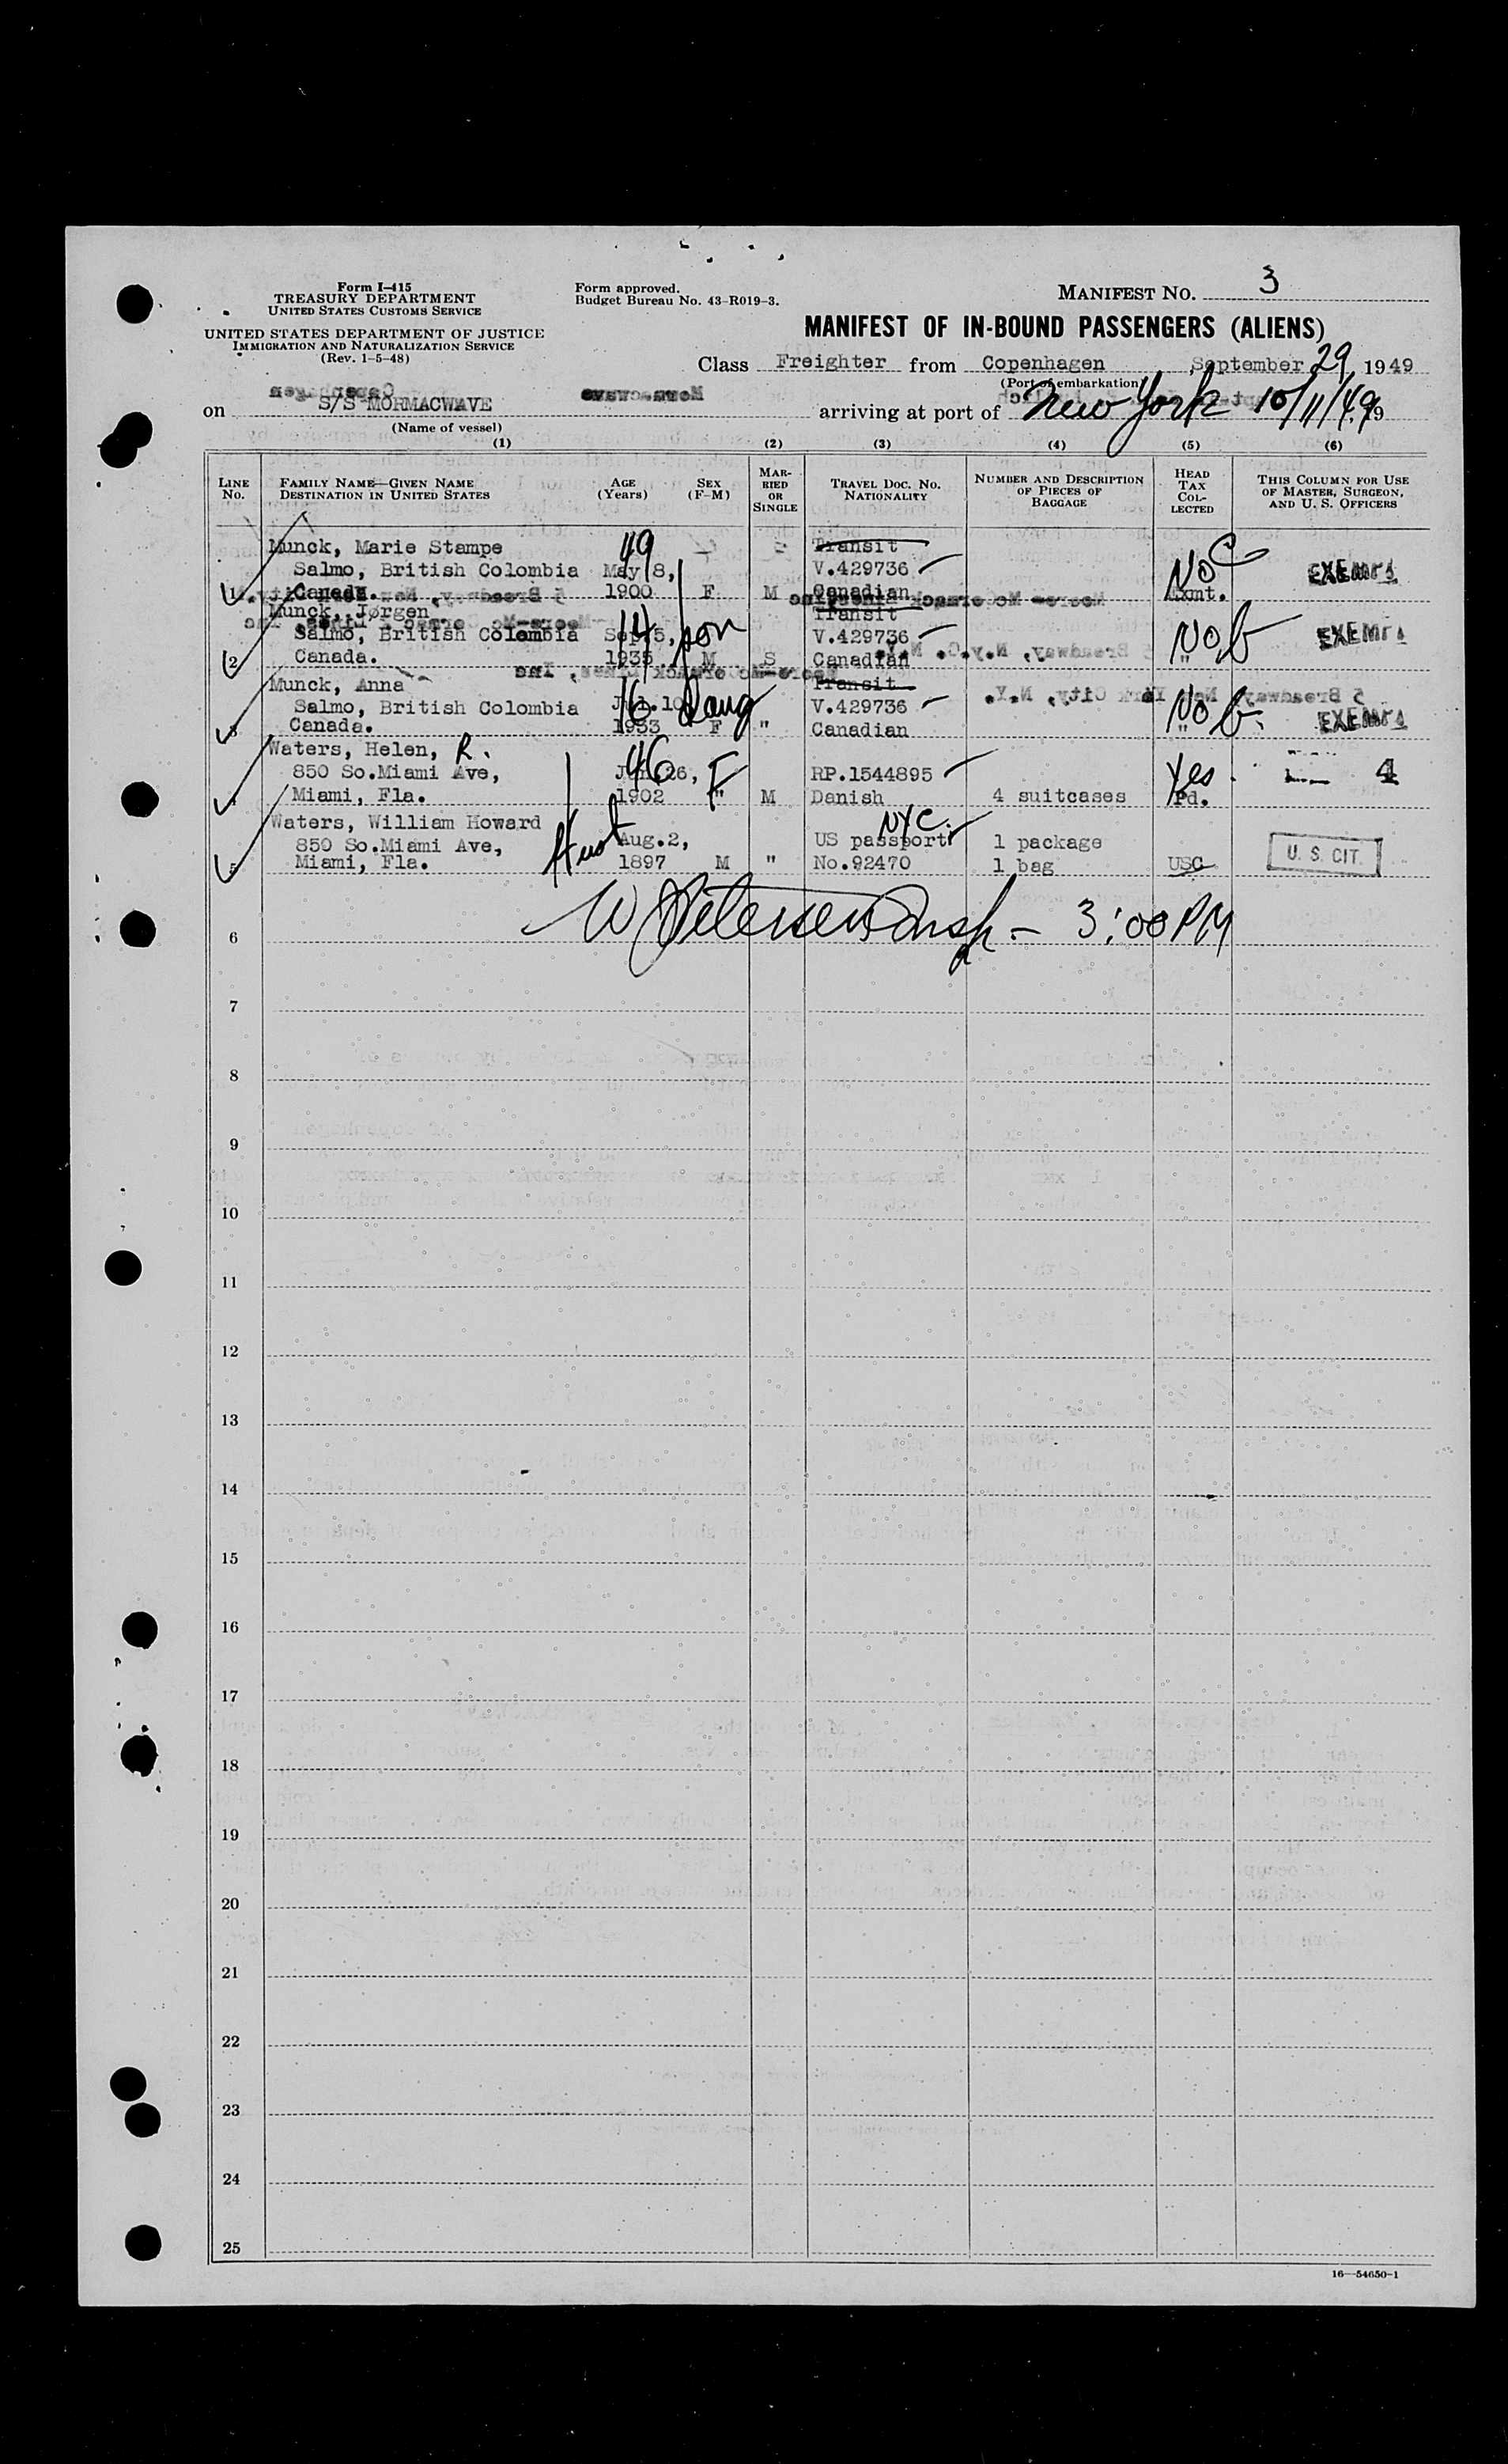 Form I-415
TREASURY DEPARTMENT
UNITED STATES CUSTOMS SERVICE
UNITED STATES DEPARTMENT OF JUSTICE
IMMIGRATION AND NATURALIZATION SERVICE
(Rev. 1-5-48)
Form approved.
Budget Bureau No. 43-R019-3.
MANIFEST NO. 3
MANIFEST OF IN-BOUND PASSENGERS (ALIENS)
Class Freighter from Copenhagen, September 29, 1949
(Port of embarkation)
on S/S MORMACWAVE arriving at port of New York 10/11/49
(Name of vessel)
(1) (2) (3) (4) (5) (6)
LINE No. FAMILY NAME—GIVEN NAME DESTINATION IN UNITED STATES AGE (Years) SEX (F-M) MARRIED OR SINGLE TRAVEL DOC. NO. NATIONALITY NUMBER AND DESCRIPTION OF PIECES OF BAGGAGE HEAD TAX COLLECTED THIS COLUMN FOR USE OF MASTER, SURGEON, AND U. S. OFFICERS
Munck, Marie Stampe 49 Transit
Salmo, British Colombia May 8, V.429736 No C EXEMPT
1 Canada. 1900 F M Canadian Exmt.
Munck, Jørgen 14 Transit
Salmo, British Colombia Sep.5, son V.429736 No b EXEMPT
2 Canada. 1935 M S Canadian "
Munck, Anna 16 Transit
Salmo, British Colombia Jun.10 Daug V.429736 No b.
3 Canada. 1933 F " Canadian " EXEMPT
Waters, Helen, R. 46
850 So.Miami Ave, 26, F RP.1544895 Yes 4
4 Miami, Fla. 1902 " M Danish 4 suitcases Pd.
Waters, William Howard NYC.
850 So.Miami Ave, Husb Aug.2, US passport 1 package U. S. CIT.
5 Miami, Fla. 1897 M " No.92470 1 bag USC
W Petersen Insp - 3:00 PM
6
7
8
9
10
11
12
13
14
15
16
17
18
19
20
21
22
23
24
25
16—54650-1